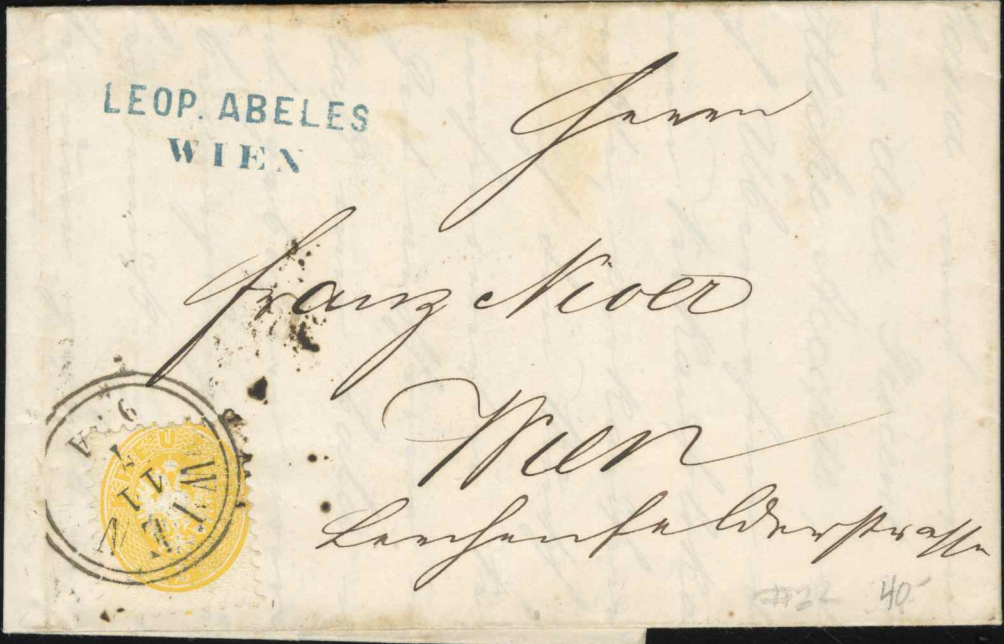 LEOP. ABELES
WIEN
Herrn
Franz Nivér
Wien
Lerchenfelderstrasse
WIEN
11
7
KREU
#22 40